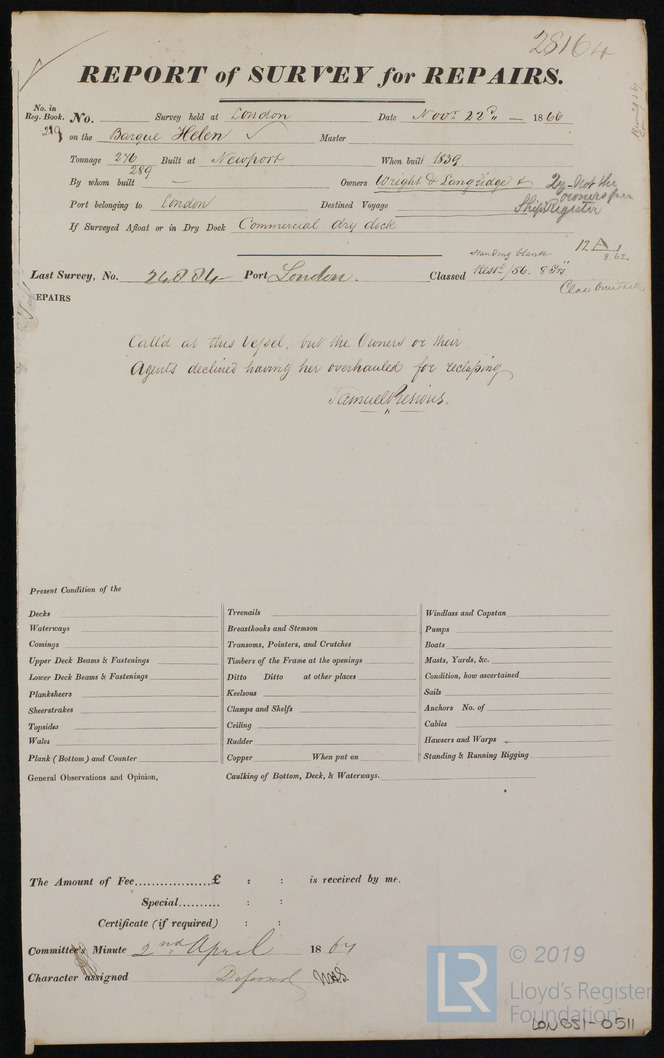 28164
REPORT of SURVEY for REPAIRS.
No. in Reg. Book. No. Survey held at London Date Novr 22d — 1866
219 on the Barque Helen Master
Tonnage 276 Built at Newport When built 1839
289
By whom built — Owners Wright & Langridge & Qy - Not the owners per Ship's Register
Port belonging to London Destined Voyage
If Surveyed Afloat or in Dry Dock Commercial dry dock
12 A 1
8.62
Last Survey, No. 24884 Port London. Classed Restd /56. 8 Yrs
REPAIRS
Call'd at this Vessel, but the Owners or their
Agents declined having her overhauled for reclassing
Samuel Presious.
Present Condition of the
Decks
Waterways
Comings
Upper Deck Beams & Fastenings
Lower Deck Beams & Fastenings
Planksheers
Sheerstrakes
Topsides
Wales
Plank (Bottom) and Counter
General Observations and Opinion,
Treenails
Breasthooks and Stemson
Transoms, Pointers, and Crutches
Timbers of the Frame at the openings
Ditto Ditto at other places
Keelsons
Clamps and Shelfs
Ceiling
Rudder
Copper When put on
Caulking of Bottom, Deck, & Waterways.
Windlass and Capstan
Pumps
Boats
Masts, Yards, &c.
Condition, how ascertained
Sails
Anchors No. of
Cables
Hawsers and Warps
Standing & Running Rigging
The Amount of Fee...................£ : : is received by me.
Special.......... : :
Certificate (if required) : :
Committee's Minute 2nd April 1867
Character assigned Deferred
© 2019
LR Lloyd's Register
Foundation
LON651-0511